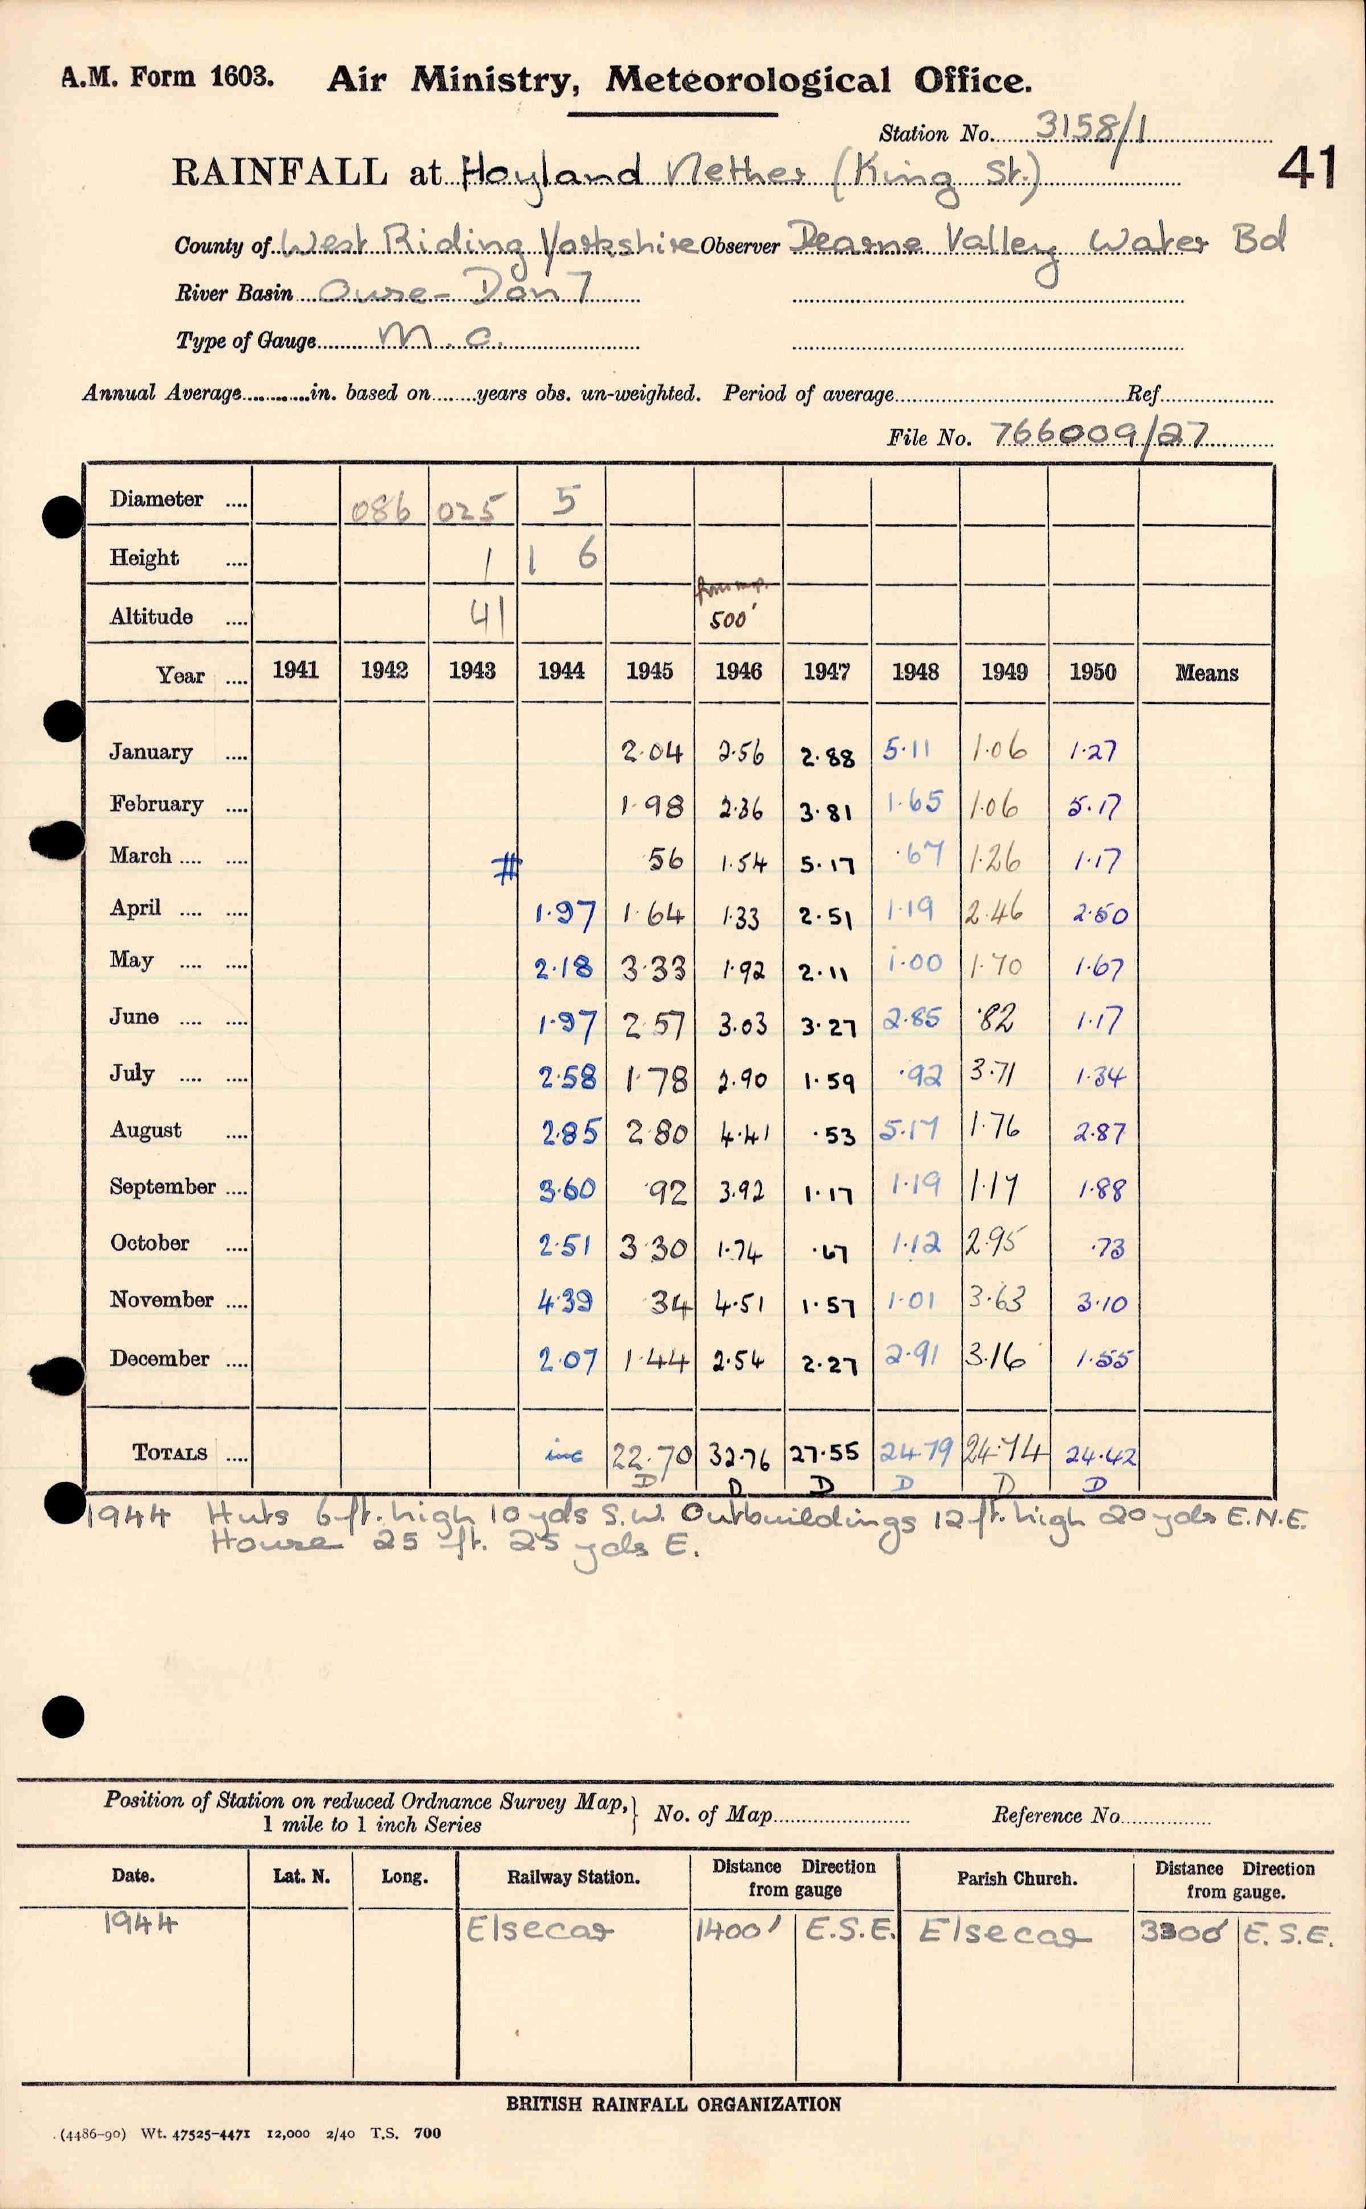 A.M. Form 1603. Air Ministry, Meteorological Office.
Station No. 3158/1
RAINFALL at Hoyland Nether (King St.) 41
County of West Riding Yorkshire Observer Dearne Valley Water Bd
River Basin Ouse - Don 7
Type of Gauge M.O.
Annual Average in. based on years obs. un-weighted. Period of average Ref
File No. 766009/27
Diameter 086 025 5
Height 1 1 6
from map.
Altitude 41 500'
Year 1941 1942 1943 1944 1945 1946 1947 1948 1949 1950 Means
January 2.04 2.56 2.88 5.11 1.06 1.27
February 1.98 2.36 3.81 1.65 1.06 5.17
March # 56 1.54 5.17 .67 1.26 1.17
April 1.97 1.64 1.33 2.51 1.19 2.46 2.50
May 2.18 3.33 1.92 2.11 1.00 1.70 1.67
June 1.97 2.57 3.03 3.27 2.85 .82 1.17
July 2.58 1.78 2.90 1.59 .92 3.71 1.34
August 2.85 2.80 4.41 .53 5.17 1.76 2.87
September 3.60 .92 3.92 1.17 1.19 1.17 1.88
October 2.51 3.30 1.74 .67 1.12 2.95 .73
November 4.39 34 4.51 1.57 1.01 3.63 3.10
December 2.07 1.44 2.54 2.27 2.91 3.16 1.55
TOTALS inc 22.70 32.76 27.55 24.79 24.74 24.42
D D D D D D
1944 Huts 6 ft. high 10 yds S.W. Outbuildings 12 ft. high 20 yds E.N.E.
House 25 ft. 25 yds E.
Position of Station on reduced Ordnance Survey Map,
1 mile to 1 inch Series
No. of Map Reference No.
Date. Lat. N. Long. Railway Station. Distance from gauge Direction Parish Church. Distance from gauge. Direction
1944 Elsecar 1400' E.S.E. Elsecar 3300' E.S.E.
BRITISH RAINFALL ORGANIZATION
(4486-90) Wt. 47525-4471 12,000 2/40 T.S. 700